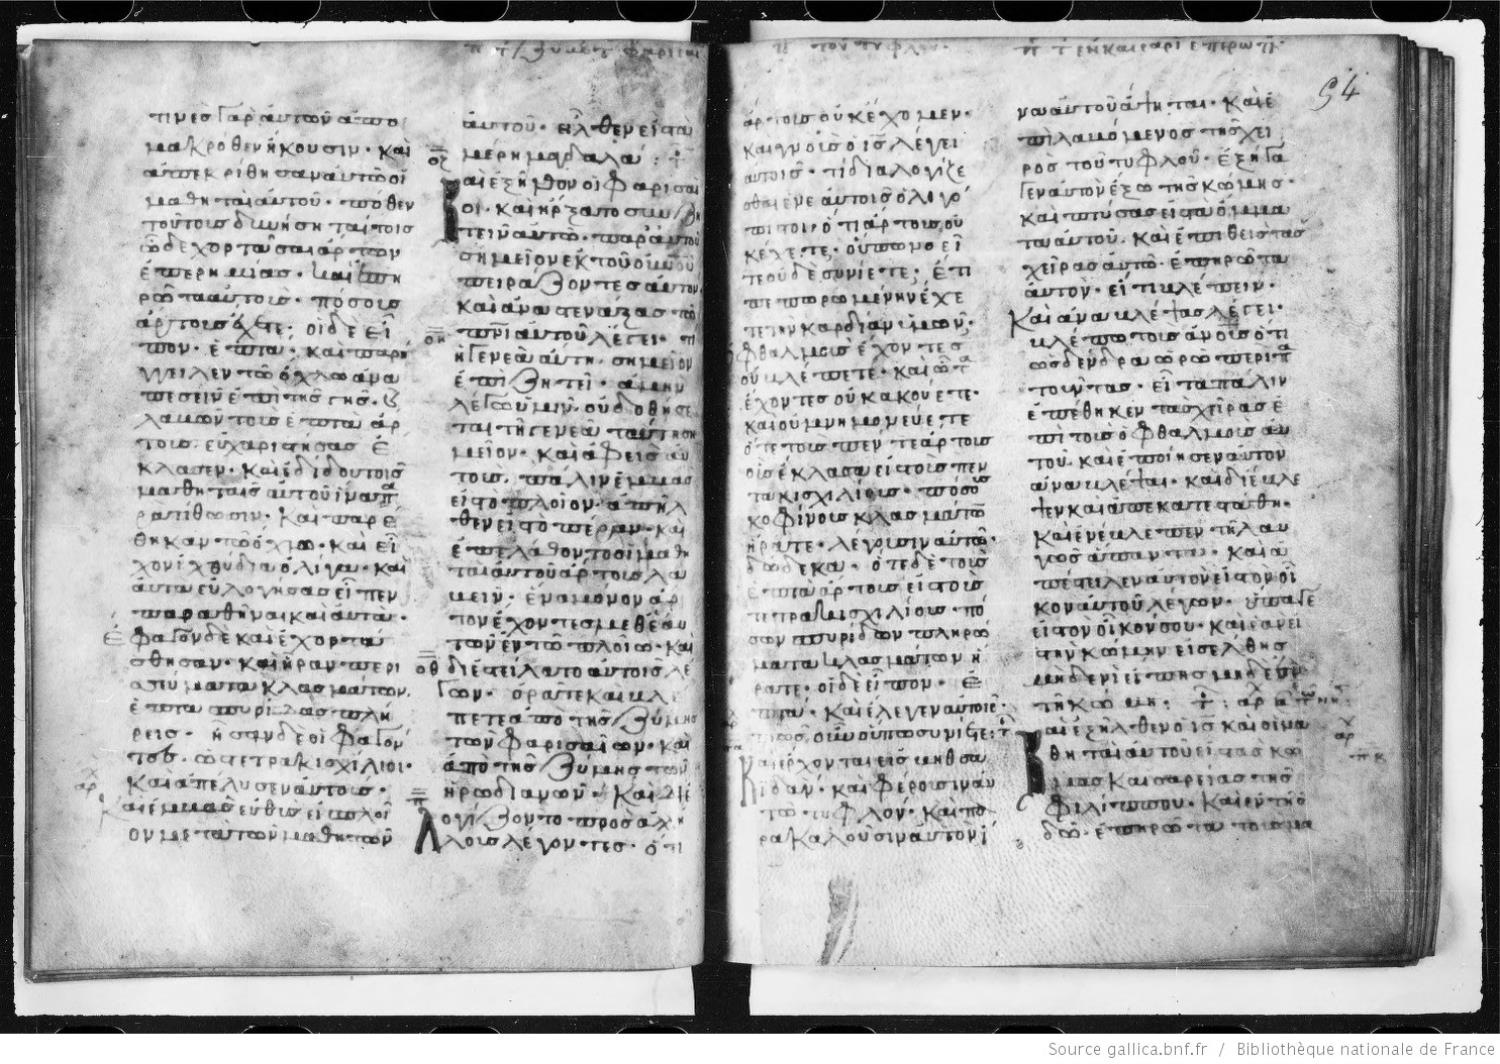 τινὲς γὰρ αὐτῶν ἀπο
μακρόθεν ἥκουσιν· καὶ
ἀπεκρίθησαν αὐτῶ οἱ
μαθηταὶ αὐτοῦ· πόθεν
τούτους δυνήσηται τίς
ὧδε χορτάσαι ἄρτων
ἐπερημίας· καὶ ἐπη
ρώτα αὐτούς· πόσους
ἄρτους ἔχετε; οἱ δὲ εἶ
πον· ἑπτά· καὶ παρήγ
γειλεν τῶ ὄχλω ἀνα
πεσεῖν ἐπὶ τῆς γῆς· ϗ
λαβὼν τοὺς ἑπτὰ ἄρ
τους εὐχαριστήσας ἔ
κλασεν· καὶ ἐδίδου τοῖς
μαθηταῖς αὐτοῦ ἵνα πα
ρατιθῶσιν· καὶ παρέ
θηκαν τῶ ὄχλω· καὶ εἶ
χον ἰχθύδια ὀλίγα· καὶ
αὐτὰ εὐλογήσας εἶπεν
παραθῆναι καὶ αὐτά·
ἔφαγον δὲ καὶ ἐχορτά
σθησαν· καὶ ἦραν περι
σεύματα κλασμάτων
ἑπτὰ σπυρίδας πλή
ρεις· ἦσαν δὲ οἱ φαγόν
τες· ὡς τετρακισχίλιοι·
καὶ ἀπέλυσεν αὐτούς·
Καὶ ἐμβὰς εὐθὺς εἰς πλοῖ
ον μετὰ τῶν μαθητῶν
αὐτοῦ· ἦλθεν εἰς τὰ
οζ μέρη μαγδαλά :
Καὶ ἐξῆλθον οἱ φαρισαῖ
οι· καὶ ἤρξαντο συνζη
τεῖν αὐτῶ· παρ' αὐτοῦ
σημεῖον ἐκ τοῦ οὐνοῦ
πειράζοντες αὐτόν·
καὶ ἀναστενάξας τῶ
οη πνι αὐτοῦ λέγει· τί
ἡ γενεὰ αὕτη σημεῖον
ἐπιζητεῖ· ἀμὴν
λέγω ὑμῖν· οὐ δοθήσε
ται τῆ γενεᾶ ταύτη ση
μεῖον· καὶ ἀφεὶς αὐ
τούς· πάλιν ἐμβὰς
εἰς τὸ πλοῖον· ἀπῆλ
θεν εἰς τὸ πέραν· καὶ
ἐπελάθοντο οἱ μαθη
ταὶ αὐτοῦ ἄρτους λα
βεῖν· ἕνα μόνον ἄρ
τον ἔχοντες μεθ' ἑαυ
τῶν ἐν τῶ πλοίω· καὶ
οθ διεστείλατο αὐτοῖς λέ
γων· ὁρᾶτε καὶ βλέ
πετε ἀπὸ τῆς ζύμης
τῶν φαρισαίων· καὶ
ἀπὸ τῆς ζύμης τῶν
π ἡρωδιανῶν· καὶ διε
λογίζοντο πρὸς ἀλλή
λους λέγοντες· ὅτι
54
ἄρτους οὐκ ἔχομεν·
καὶ γνοὺς ὁ ις λέγει
αὐτοῖς· τί διαλογίζε
σθαι ἐν ἑαυτοῖς ὀλιγό
πιστοι· ὅτι ἄρτους οὐ
κ ἔχετε· οὔπω νοεῖ
τε οὐδὲ συνίετε; ἔτι
πεπωρωμένην ἔχε
τε τὴν καρδίαν ὑμῶν·
ὀφθαλμοὺς ἔχοντες
οὐ βλέπετε· καὶ ὦτα
ἔχοντες οὐκ ἀκούετε·
καὶ οὐ μνημονεύετε
ὅτε τοὺς πέντε ἄρτους
οὓς ἔκλασα εἰς τοὺς πεν
τακισχιλίους· πόσους
κοφίνους κλασμάτων
ἤρατε· λέγουσιν αὐτῶ·
δώδεκα· ὅτε δὲ τοὺς
ἑπτὰ ἄρτους εἰς τοὺς
τετρακισχιλίους· πό
σων σπυρίδων πληρώ
ματα κλασμάτων ἤ
ρατε· οἱ δὲ εἶπον· ἑ
πτά· καὶ ἔλεγεν αὐτοῖς·
πῶς οὖν οὔπω συνίετε:
Καὶ ἔρχονται εἰς βηθσα
ϊδάν· καὶ φέρουσιν αὐ
τῶ τυφλόν· καὶ πα
ρακαλοῦσιν αὐτὸν ἵ
να αὐτοῦ ἅψηται· καὶ ἐ
πιλαβόμενος τῆς χει
ρὸς τοῦ τυφλοῦ· ἐξήγα
γεν αὐτὸν ἔξω τῆς κώμης·
καὶ πτύσας εἰς τὰ ὄμμα
τα αὐτοῦ· καὶ ἐπιθεὶς τὰς
χεῖρας αὐτῶ· ἐπηρώτα
αὐτόν· εἴ τι βλέπειν·
Καὶ ἀναβλέψας λέγει·
βλέπω τοὺς ἀνους ὅτι
ὡς δένδρα ὁρῶ περιπα
τοῦντας· εἶτα πάλιν
ἐπέθηκεν τὰς χεῖρας ἐ
πὶ τοὺς ὀφθαλμοὺς αὐ
τοῦ· καὶ ἐποίησεν αὐτὸν
ἀναβλέψαι· καὶ διέβλε
ψεν καὶ ἀπεκατεστάθη·
καὶ ἐνέβλεπεν τηλαυ
γῶς ἅπαντα· καὶ ἀ
πέστειλεν αὐτὸν εἰς τὸν οἶ
κον αὐτοῦ λέγων· ὕπαγε
εἰς τὸν οἶκόν σου· καὶ ἐὰν εἰς
τὴν κώμην εἰσέλθης
μηδενὶ εἴπης μηδὲ ἐν
τῆ κώμη:
Καὶ ἐξῆλθεν ὁ ις καὶ οἱ μα
θηταὶ αὐτοῦ εἰς τὰς κώ
μας καισαρείας τῆς
φιλίππου· καὶ ἐν τῆ ὁ
δῶ· ἐπηρώτα τοὺς μα
Source gallica.bnf.fr / Bibliothèque nationale de France